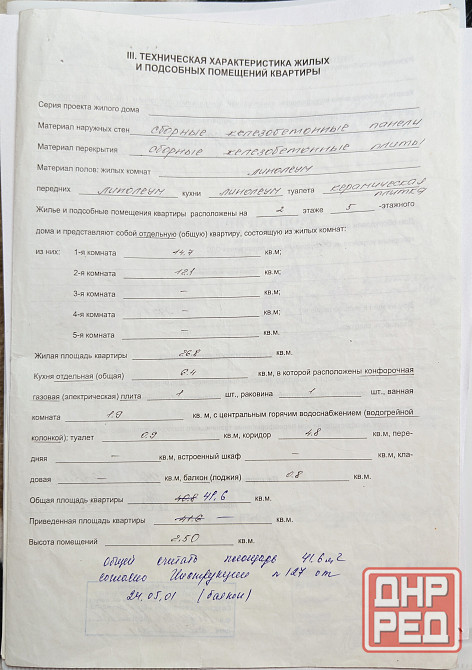 III. ТЕХНИЧЕСКАЯ ХАРАКТЕРИСТИКА ЖИЛЫХ
И ПОДСОБНЫХ ПОМЕЩЕНИЙ КВАРТИРЫ
Серия проекта жилого дома
Материал наружных стен сборные железобетонные панели
Материал перекрытия сборные железобетонные плиты
Материал полов: жилых комнат линолеум
передних линолеум кухни линолеум туалета керамическая плитка
Жилье и подсобные помещения квартиры расположены на 2 этаже 5 -этажного
дома и представляют собой отдельную (общую) квартиру, состоящую из жилых комнат:
из них: 1-я комната 14,7 кв.м;
2-я комната 12,1 кв.м;
3-я комната – кв.м;
4-я комната – кв.м;
5-я комната – кв.м;
Жилая площадь квартиры 26.8 кв.м.
Кухня отдельная (общая) 6.4 кв.м, в которой расположены конфорочная
газовая (электрическая) плита 1 шт., раковина 1 шт., ванная
комната 1.9 кв. м, с центральным горячим водоснабжением (водогрейной
колонкой); туалет 0.9 кв.м, коридор 4.8 кв.м, пере-
дняя – кв.м, встроенный шкаф – кв.м, кла-
довая – кв.м, балкон (лоджия) 0.8 кв.м.
Общая площадь квартиры 40.8 41,6 кв.м.
Приведенная площадь квартиры 41.6 – кв.м.
Высота помещений 2.50 кв.м.
общей считать площадь 41.6 м2
согласно Инструкции № 127 от
24.05.01 (балкон)
ДНР
РЕД